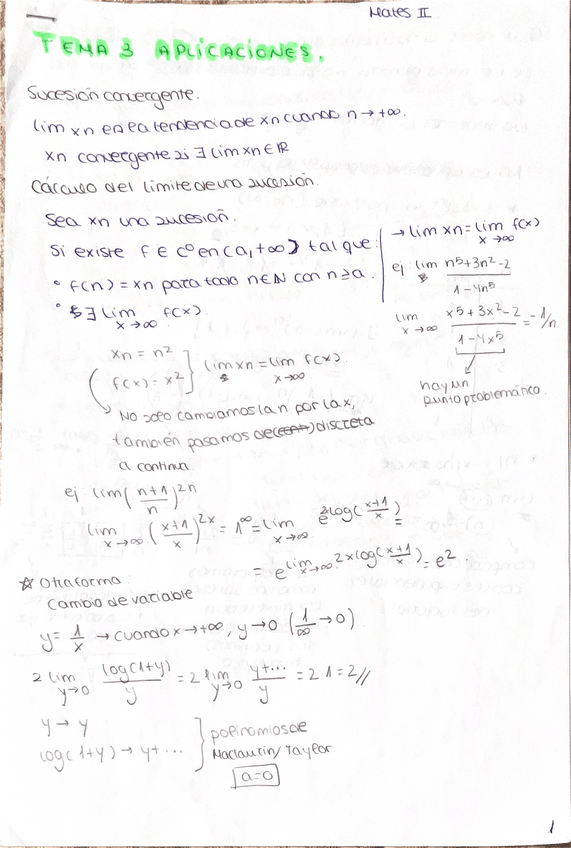 Mates II
TEMA 3 APLICACIONES.
Sucesión convergente.
lim xn es la tendencia de xn cuando n → +∞.
xn convergente si ∃ lim xn ∈ ℝ
Cálculo del límite de una sucesión.
Sea xn una sucesión.
Si existe f ∈ C⁰ en (a, +∞) tal que:
• f(n) = xn para todo n ∈ ℕ con n ≥ a.
• ∃ lim x→∞ f(x).
→ lim xn = lim x→∞ f(x)
ej lim (n⁵+3n²-2)/(1-4n⁵)
lim x→∞ (x⁵+3x²-2)/(1-4x⁵) = -1/n
hay un
punto problemático.
xn = n²
f(x) = x²
lim xn = lim x→∞ f(x).
No solo cambiamos la n por la x,
también pasamos de discreta
a continua
ej lim ((n+1)/n)^2n
lim x→∞ ((x+1)/x)^2x = 1^∞ = lim x→∞ e^2log((x+1)/x) =
= e^(lim x→∞ 2x log((x+1)/x)) = e²
☆ Otra forma:
Cambio de variable
y = 1/x → cuando x → +∞, y → 0 (1/∞ → 0)
2 lim y→0 log(1+y)/y = 2 lim y→0 (y+...)/y = 2 1 = 2//
y → y
log(1+y) → y + ...
polinomios de
Maclaurin/Taylor
a=0
1